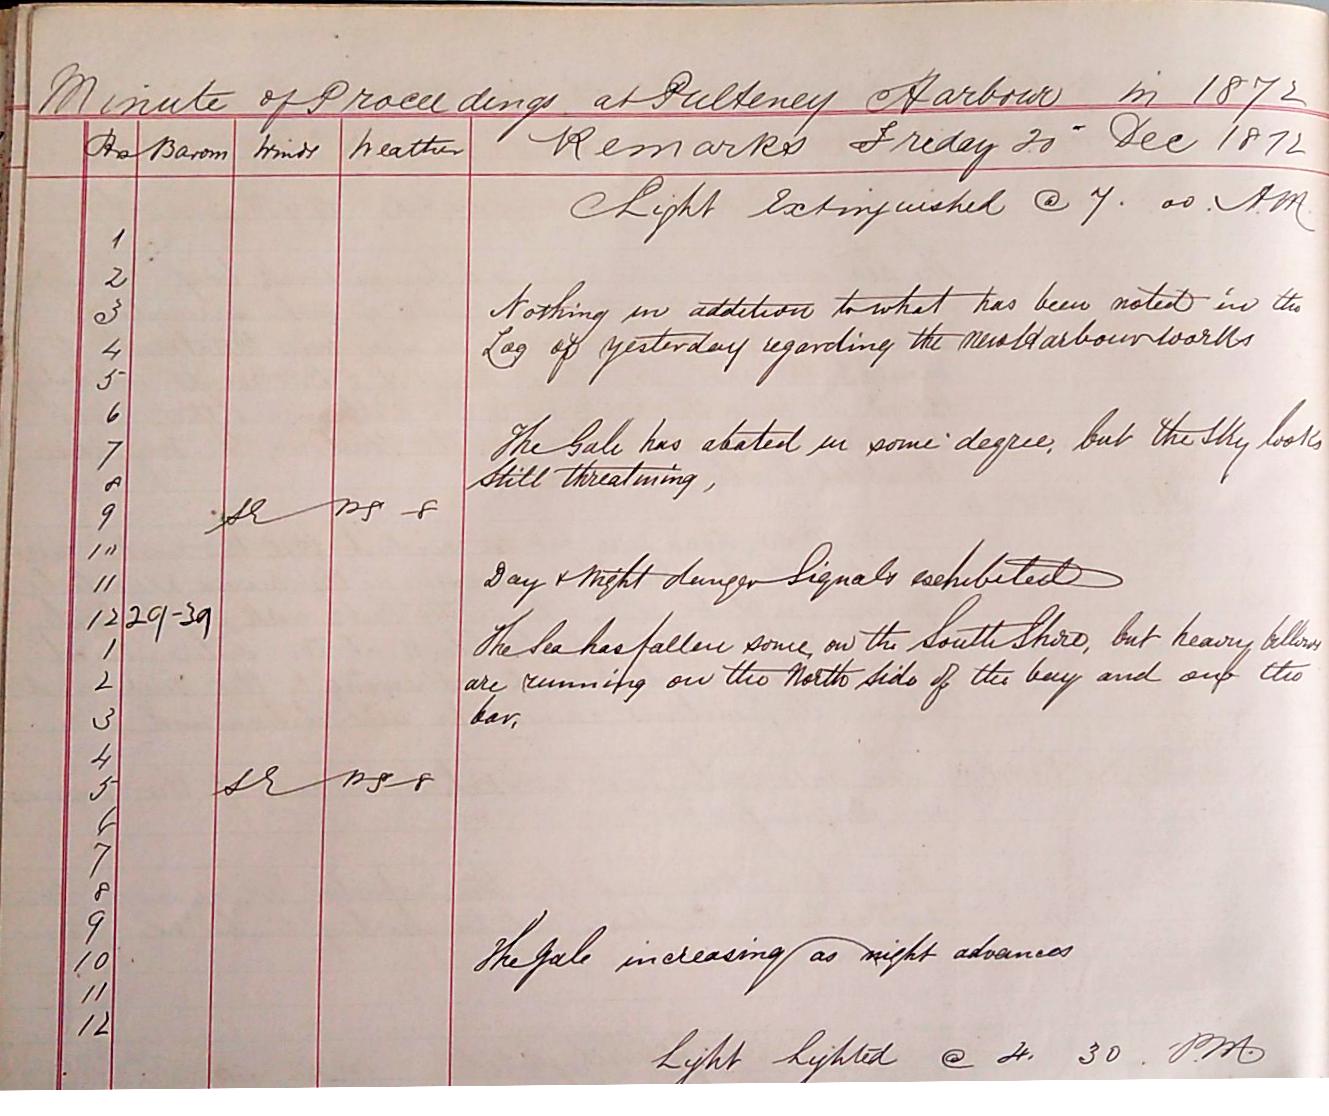 Minute of Proceedings at Pulteney Harbour in 1872
Hs Barom Winds Weather Remarks Friday 20 Dec 1872
Light Extinguished @ 7. 00. A.M.
1
2
3 Nothing in addition to what has been noted in the
4 Log of yesterday regarding the new Harbour works
5
6
7 The Gale has abated in some degree, but the Sky looks
8 still threatining,
9 SE
10
11 Day & Night danger Signals exhibited
12 29-39
1 The Sea has fallen some, on the South Shore, but heavy billows
2 are running on the North side of the bay and on the
3 bar,
4
5 SE
6
7
8
9
10 The gale increasing as night advances
11
12
Light Lighted @ 4. 30. P.M.